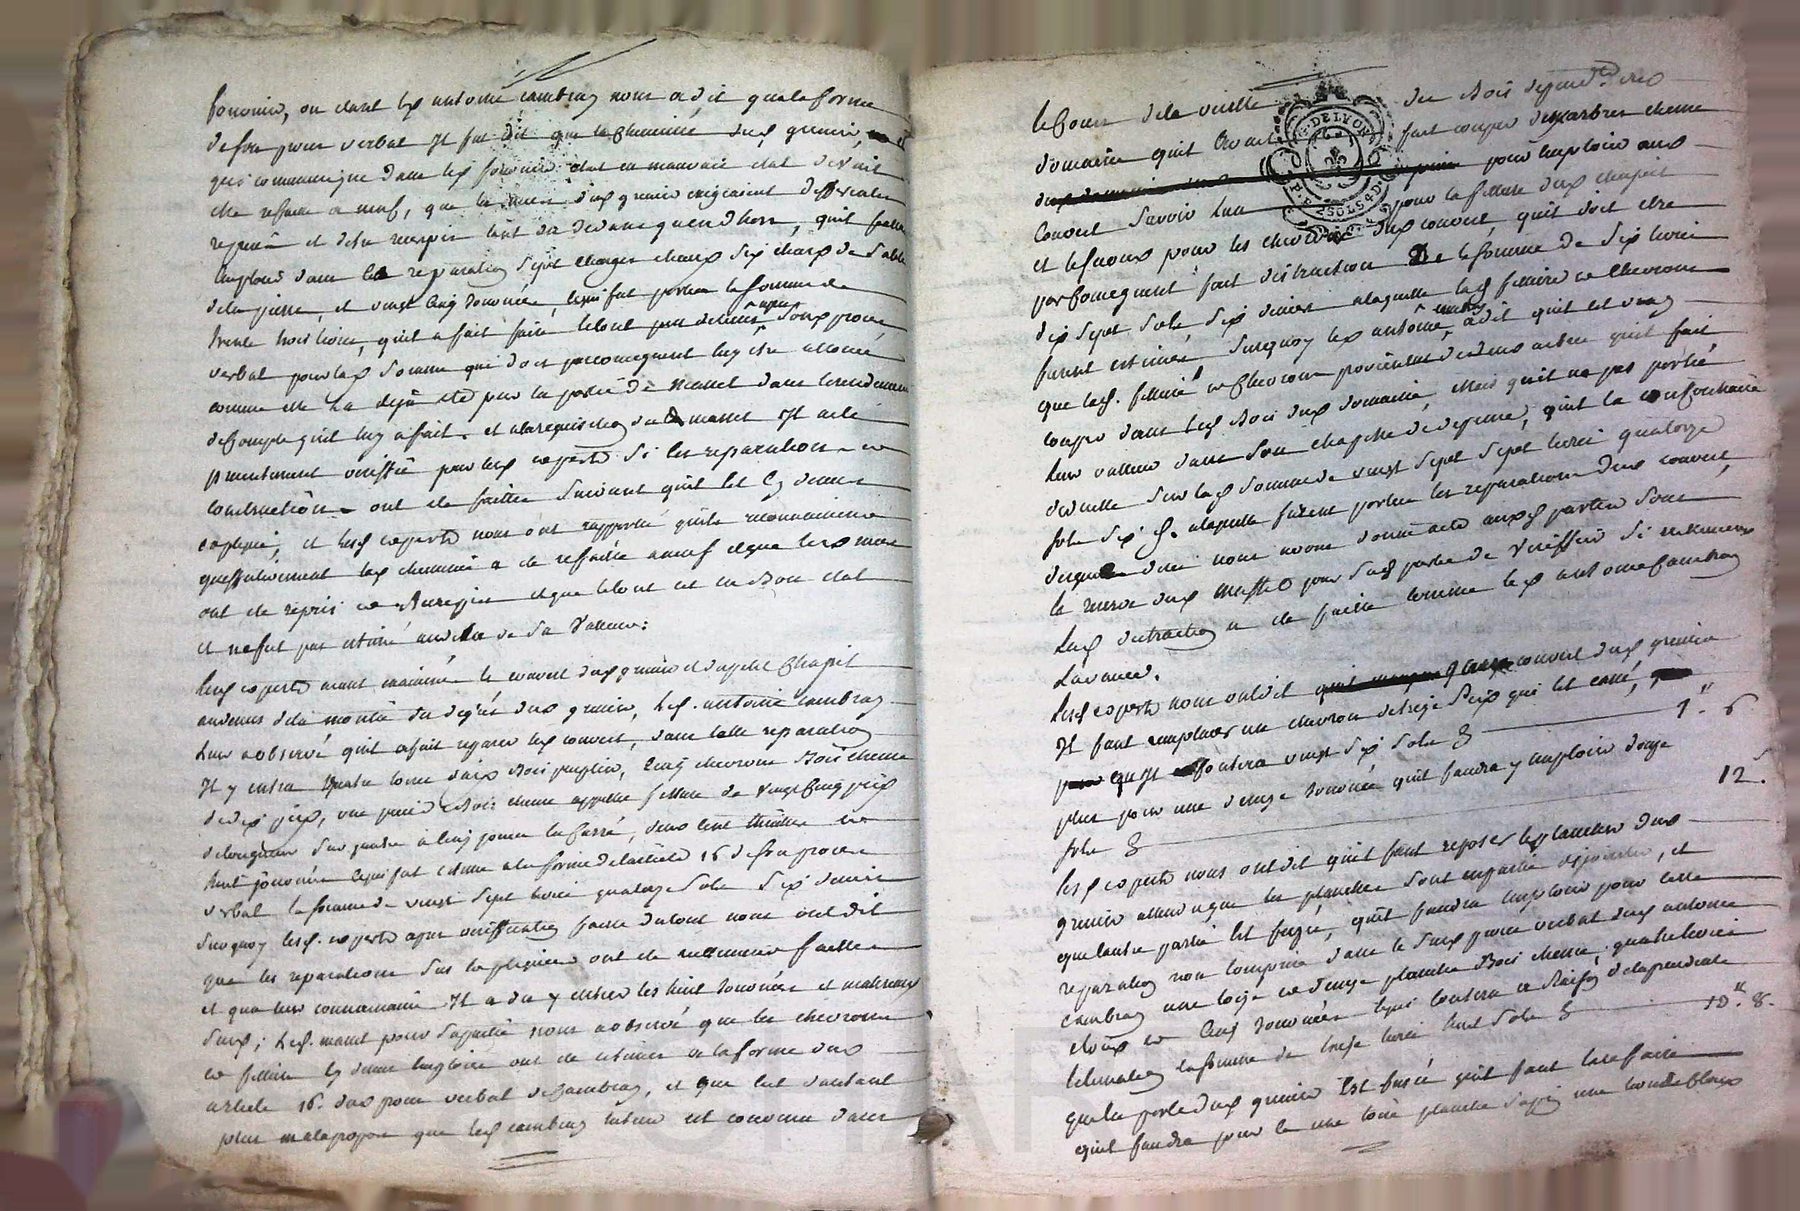 fournier, ou etant led antoine cambray nous a dit qua la forme
de son proces verbal Il fut dit que la cheminée dud grenier
qui communique dans led fournier etait en mauvais etat devait
etre refaitte a neuf, que les murs dud grenier exigeaient differentes
reparations et detre recrepis tant du dedans quen dhors, quil fallut
employer dans les reparations sept charges chaux six chars de sable
de la pierre, et vingt cinq journées, ce qui fut porté a la somme de
trente trois livres, quil a fait faire le tout peu de tems apres son proces
verbal pour lad somme qui doit par consequent luy etre allouée
comme elle l'a deja eté pour la partie de masset dans le rendement
de compte quil luy a fait. et a la requisition dud masset Il a été
presentement veriffié par lesd experts si les reparations et
constructions ont eté faittes suivant quil est cy dessus
expliqué, et lesd experts nous ont rapporté quils reconnaissent
queffectivement lad cheminée a eté refaitte a neuf et que les murs
ont eté repris et recrepis et que le tout est en bon etat
et ne fut pas estimé au dela de sa valleur:
lesd experts ayant examiné le couvert dud grenier et du petit chapit
au dessus de la montée du degrés dud grenier, led. antoine cambray
leur a observé quil a fait reparer led couvert, dans cette reparation
Il y entra quatre toises d'aix bois peuplier, cinq chevrons bois chene
de dix pieds, une piece bois chene appellée filliere de vingt cinq pieds
de longueur sur quatre a cinq pouces en carré, deux cent thuilles et
huit journées ce qui fut estimé a la forme de l'article 16 de son proces
verbal la somme de vingt sept livres quatorze sols six deniers
surquoy lesd. experts apres veriffication faitte du tout nous ont dit
que les reparations sus expliquées ont eté reellement faittes
et qua leur connaissance Il a du y entrer les huit journées et materiaux
susd; led. masset pour sa partie nous a observé que les chevrons
et filliere cy dessus employés ont eté estimés a la forme dud
article 16. dud proces verbal de cambray, et que cest d'autant
plus mal a propos que led cambray luimeme est convenu dans
le cours de la visitte des bois dependants dud
domaine quil avait fait couper des arbres chene
pour employer aux
couvert savoir un pour la filliere dud chapit
et le surplus pour les chevrons dud couvert, quil doit etre
par consequent fait distraction de la somme de six livres
dix sept sols six deniers a laquelle lesd filliere et chevrons
furent estimés surquoy led antoine cambray a dit quil est vray
que lesd. filliere et chevrons provienent des deux arbres quil fait
couper dans lesd bois dud domaine, mais quil na pas porté
leur valleur dans son chapitre de depense, quil la au contraire
deduitte sur lad somme de vingt sept sept livres quatorze
sols six d. a laquelle furent portées les reparations dud couvert,
duquel dire nous avons donné acte auxd parties sous
la reserve dud masset pour sad partie de veriffier si reellement
lad distraction a eté faitte comme led antoine cambray
l'avance.
lesd experts nous ont dit couvert dud grenier
Il faut remplacer un chevron de treize pieds qui est cassé,
ce qui coutera vingt six sols 1" 6
plus pour une demye journée quil faudra y employer douze
sols 12
lesd experts nous ont dit quil faut reposer le plancher dud
grenier attendu que les planches sont en partie disjointes, et
que lautre partie est fuzée, quil faudra employer pour cette
reparation non comprise dans le sud proces verbal dud antoine
cambray une toise et demye planches bois chene, quatre livres
cloux et cinq journées ce qui coutera et raison de la presente
estimation la somme de treize livres huit sols 13" 8.
que la porte dud grenier est fuzée quil faut la refaire
quil faudra pour ce une toise planches sapin une livre de cloux